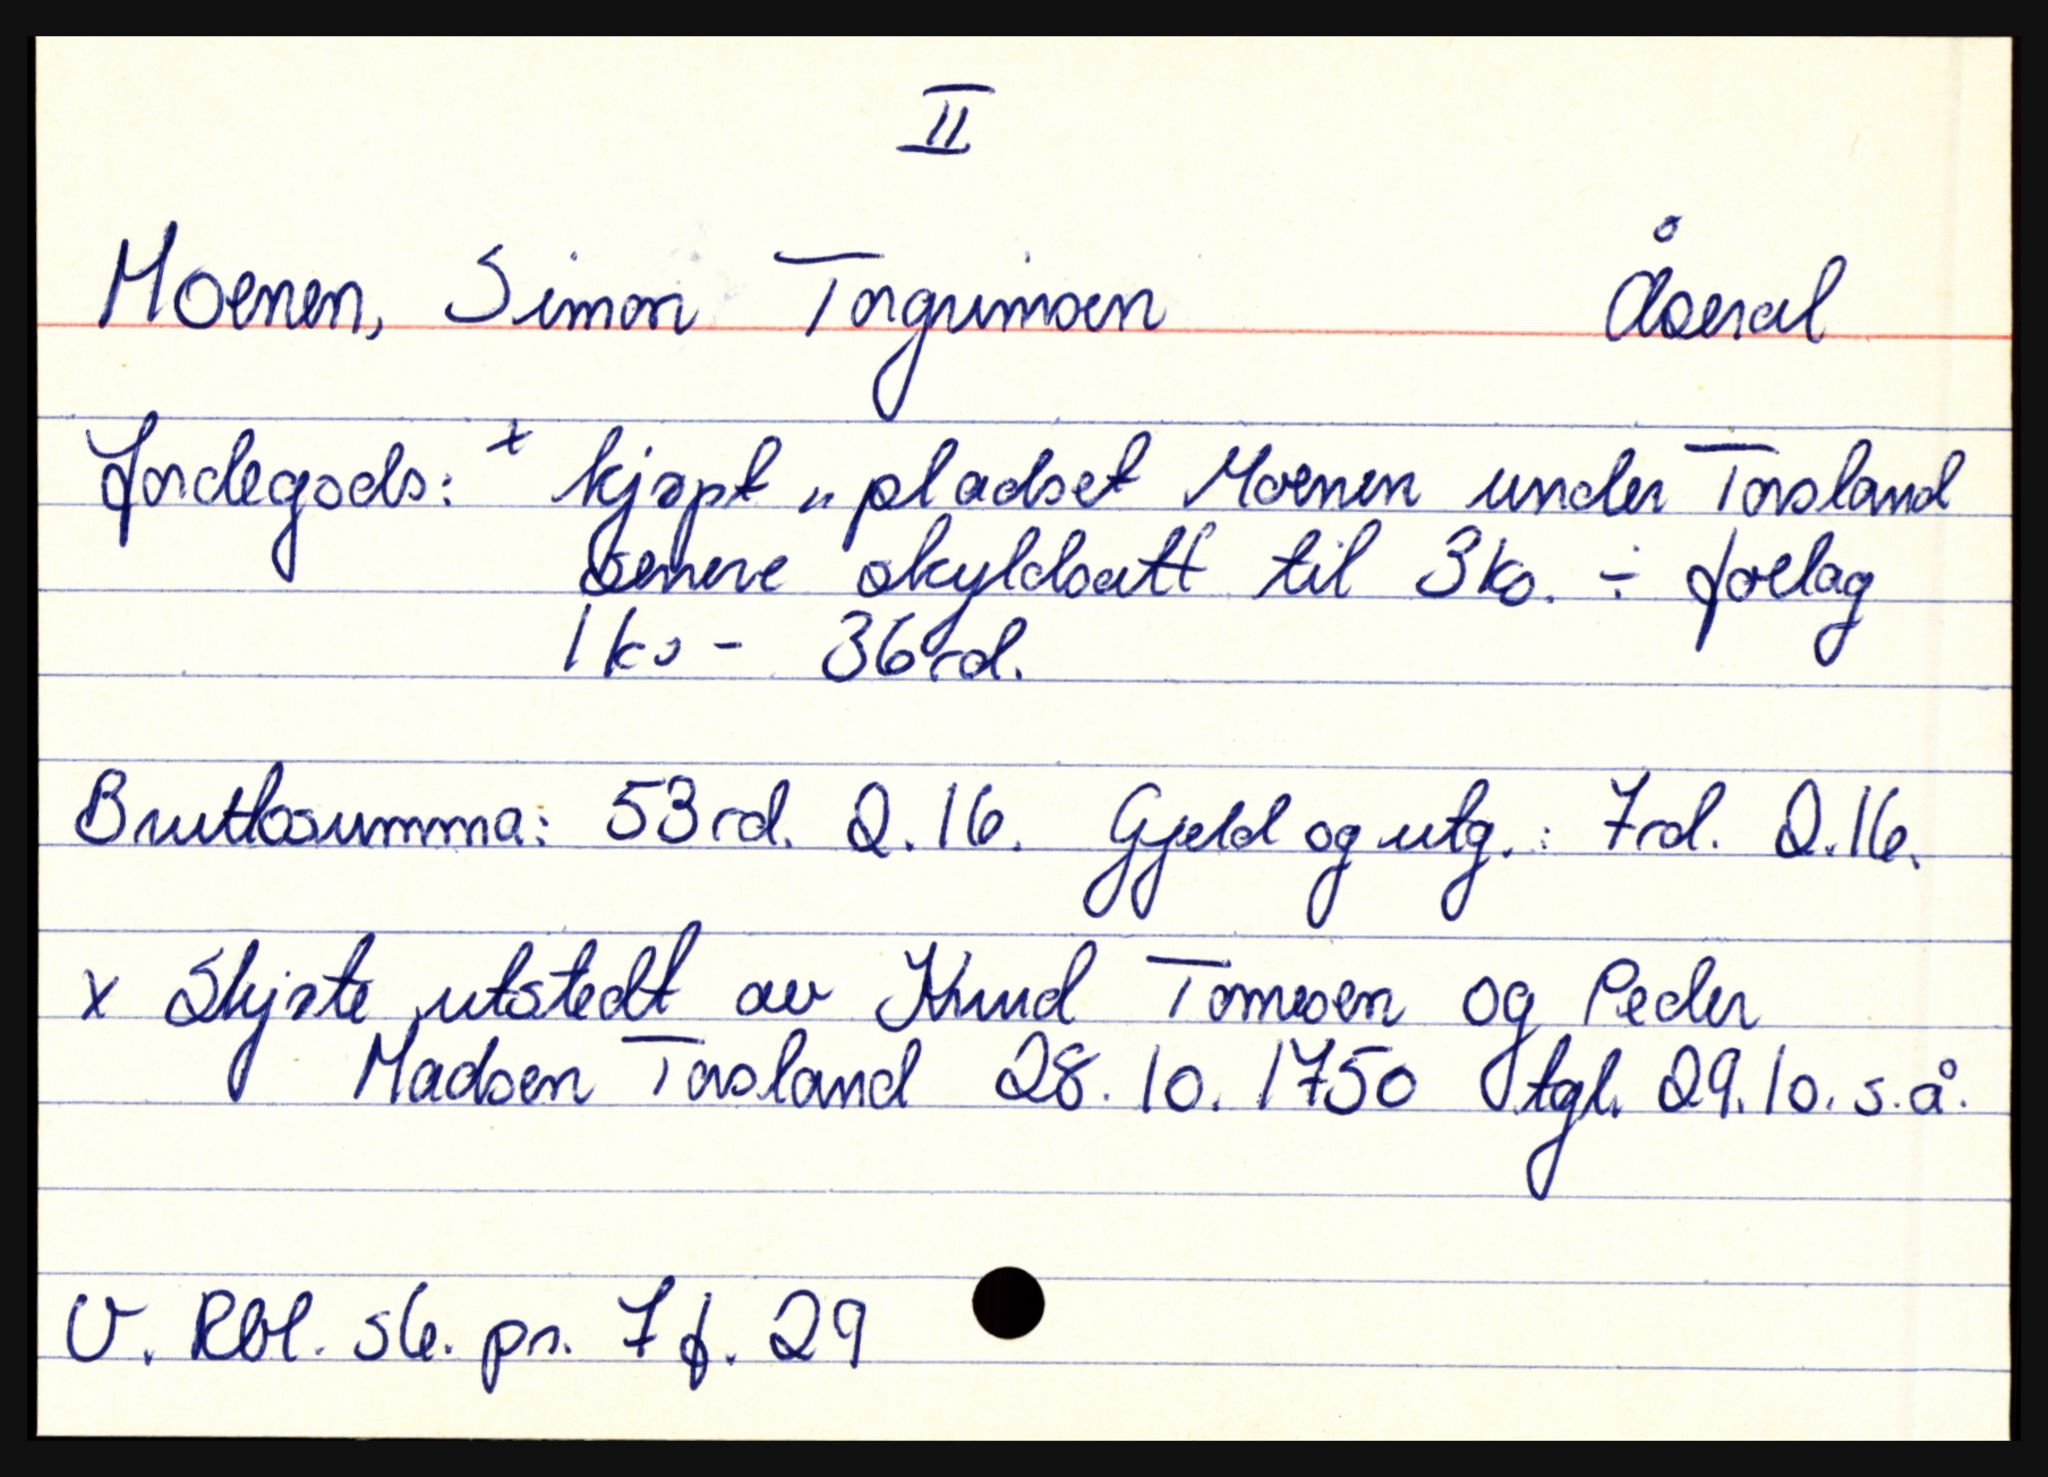 II
Moenen, Simon Torgrimsen Åseral
Jordegods: x kjøpt „ pladset Moenen under Torsland
senere skyldsatt til 3 ks. ÷ forlag
1 ks - 36 rd.
Bruttosumma: 53 rd. 2. 16. Gjeld og utg. : 7 rd. 2. 16.
x Skjøte utstedt av Knud Tomesen og Peder
Madsen Torsland 28. 10. 1750 tgl. 29. 10. s. å.
V. Rbl. sk. pr. 7 f. 29